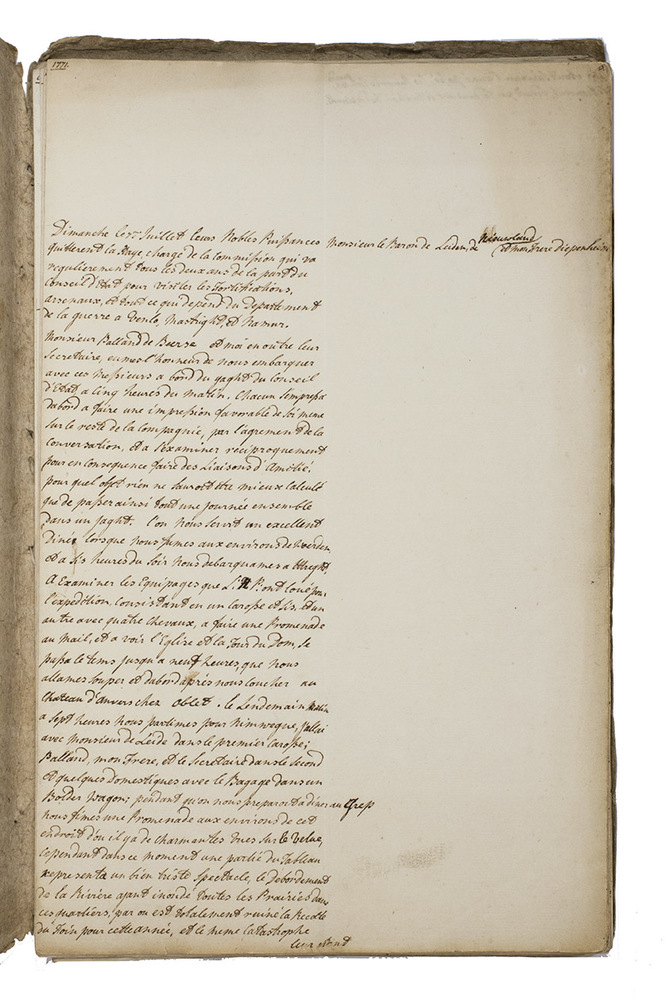 1771.
Dimanche le 7me Juillet leurs Nobles Puissances Monsieur le Baron de Leiden, de Nieuwland
quitterent la Haye, chargé de la Commission qui va et mon Frere Diepenheim
regulierement tous les deux ans de la part du
Conseil d'Etat pour visiter les Fortifications,
arsenaux, et tout ce qui depend du Departement
de la guerre a Venlo, Mastright, et Namur.
Monsieur Balland de Beerse et moi en outre leur
Secretaire, eumes l'honneur de nous embarquer
avec ces Messieurs a bord du yaght du Conseil
d'Etat a Cinq heures du matin. Chacun s'empressa
dabord a faire une impression favorable de soi meme
sur le reste de la Compagnie, par l'agrement de la
Conversation, et a s'examiner reciproquement
pour en consequence faire des Liaisons d'Amitié
pour quel objet rien ne sauroit être mieux Calculé
que de passer ainsi tout une journée ensemble
dans un jaght. l'on nous servit un excellent
Diné lorsque nous fumes aux environs de Woerden
et a Six heures du Soir nous debarquames a Utreght,
A Examiner les Equipages que L. N. P. ont loué pour
l'expedition, Consistant en un Carosse et Six, et un
autre avec quatre Chevaux, a faire une Promenade
au mail, et a voir l'Eglise et la Tour du Dom, se
passa le tems jusqu'a neuf heures, que nous
allames souper et dabord après nous coucher au
Chateau d'Anvers chez Oblet. le Lendemain matin
a Sept heures nous partimes pour Nimwegue, j'allai
avec Monsieur de Leide dans le premier Carosse,
Balland, mon Frere, et le Secretaire dans le Second
et quelques Domestiques avec le Bagage dans un
Bolder Wagon; pendant qu'on nous preparoit a diner au Grep
nous fimes une Promenade aux environs de cet
endroit d'ou il y a de charmantes vues sur le Veluë,
Cependant dans ce moment une partie du Tableau
representa un bien triste Spectacle, le Debordement
de la Rivière ayant inondé toutes les Prairies dans
ces quartiers, par ou est totalement ruiné la Recolte
du Foin pour cette année, et le meme Catastrophe